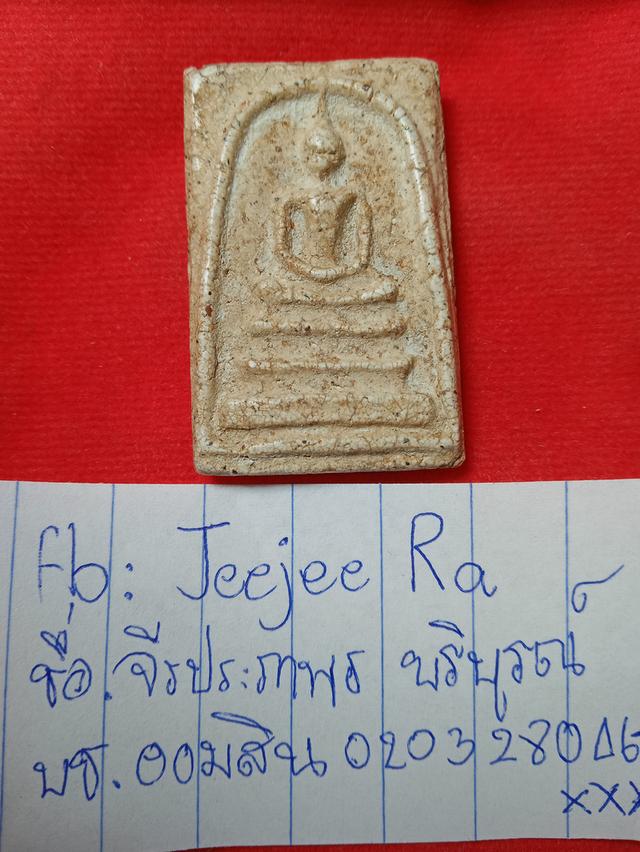 fb: Jeejee Ra
ชื่อ.จีรประภาพร บริบูรณ์
บช.ออมสิน 020328046
xxx